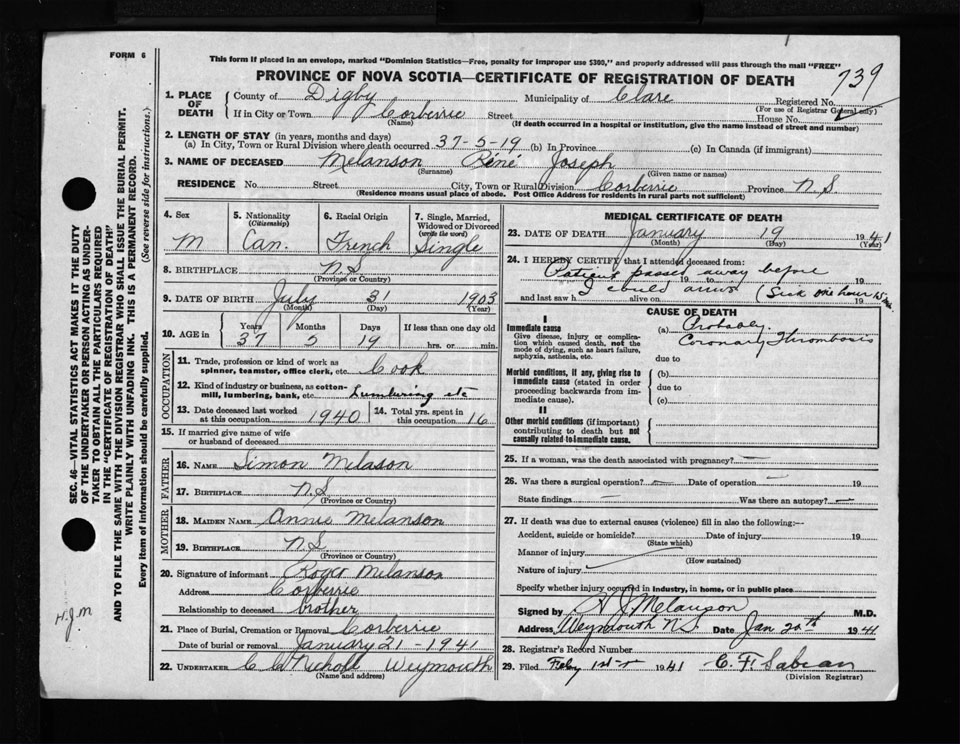 FORM 6
This form if placed in an envelope, marked "Dominion Statistics—Free, penalty for improper use $300," and properly addressed will pass through the mail "FREE"
PROVINCE OF NOVA SCOTIA—CERTIFICATE OF REGISTRATION OF DEATH
739
1. PLACE OF DEATH County of Digby Municipality of Clare Registered No.
(For use of Registrar General only)
If in City or Town Corberrie Street House No.
(Name) (If death occurred in a hospital or institution, give the name instead of street and number)
2. LENGTH OF STAY (in years, months and days)
(a) In City, Town or Rural Division where death occurred 37-5-19 (b) In Province (c) In Canada (if immigrant)
3. NAME OF DECEASED Melanson Réné Joseph
(Surname) (Given name or names)
RESIDENCE No. Street City, Town or Rural Division Corberrie Province N S
(Residence means usual place of abode. Post Office Address for residents in rural parts not sufficient)
4. Sex M
5. Nationality (Citizenship) Can.
6. Racial Origin French
7. Single, Married, Widowed or Divorced (write the word) Single
8. BIRTHPLACE N.S
(Province or Country)
9. DATE OF BIRTH July 31 1903
(Month) (Day) (Year)
10. AGE in Years Months Days If less than one day old
37 5 19 hrs. or min.
OCCUPATION
11. Trade, profession or kind of work as spinner, teamster, office clerk, etc. Cook
12. Kind of industry or business, as cotton-mill, lumbering, bank, etc. Lumbering etc
13. Date deceased last worked at this occupation 1940 14. Total yrs. spent in this occupation 16
15. If married give name of wife or husband of deceased
FATHER
16. NAME Simon Melason
17. BIRTHPLACE N.S
(Province or Country)
MOTHER
18. MAIDEN NAME Annie Melanson
19. BIRTHPLACE N.S
(Province or Country)
20. Signature of informant Roger Melanson
Address Corberrie
Relationship to deceased brother
21. Place of Burial, Cremation or Removal Corberrie
Date of burial or removal January 21-1941
22. UNDERTAKER C C Nichols Weymouth
(Name and address)
MEDICAL CERTIFICATE OF DEATH
23. DATE OF DEATH January 19 1941
(Month) (Day) (Year)
24. I HEREBY CERTIFY that I attended deceased from:
Patient passed away before
19 to 19
I could arrive (Sick one hour 15 min.
and last saw h alive on 19
CAUSE OF DEATH
I
Immediate cause
Give disease, injury or complication which caused death, not the mode of dying, such as heart failure, asphyxia, asthenia, etc.
(a) Probably
Coronary Thrombosis
due to
Morbid conditions, if any, giving rise to immediate cause (stated in order proceeding backwards from immediate cause).
(b)
due to
(c)
II
Other morbid conditions (if important) contributing to death but not causally related to immediate cause.
25. If a woman, was the death associated with pregnancy? —
26. Was there a surgical operation? — Date of operation — 19
State findings — Was there an autopsy? —
27. If death was due to external causes (violence) fill in also the following:—
Accident, suicide or homicide? Date of injury 19
(State which)
Manner of injury
(How sustained)
Nature of injury
Specify whether injury occurred in industry, in home, or in public place
Signed by H J Melanson M.D.
Address Weymouth N.S Date Jan 20th 1941
28. Registrar's Record Number
29. Filed Feby 1st 1941 C. F. Sabean
(Division Registrar)
SEC. 46—VITAL STATISTICS ACT MAKES IT THE DUTY
OF THE UNDERTAKER OR PERSON ACTING AS UNDER-
TAKER TO OBTAIN ALL THE PARTICULARS REQUIRED
IN THE "CERTIFICATE OF REGISTRATION OF DEATH"
AND TO FILE THE SAME WITH THE DIVISION REGISTRAR WHO SHALL ISSUE THE BURIAL PERMIT.
WRITE PLAINLY WITH UNFADING INK. THIS IS A PERMANENT RECORD.
Every item of information should be carefully supplied. (See reverse side for instructions.)
H.J.M